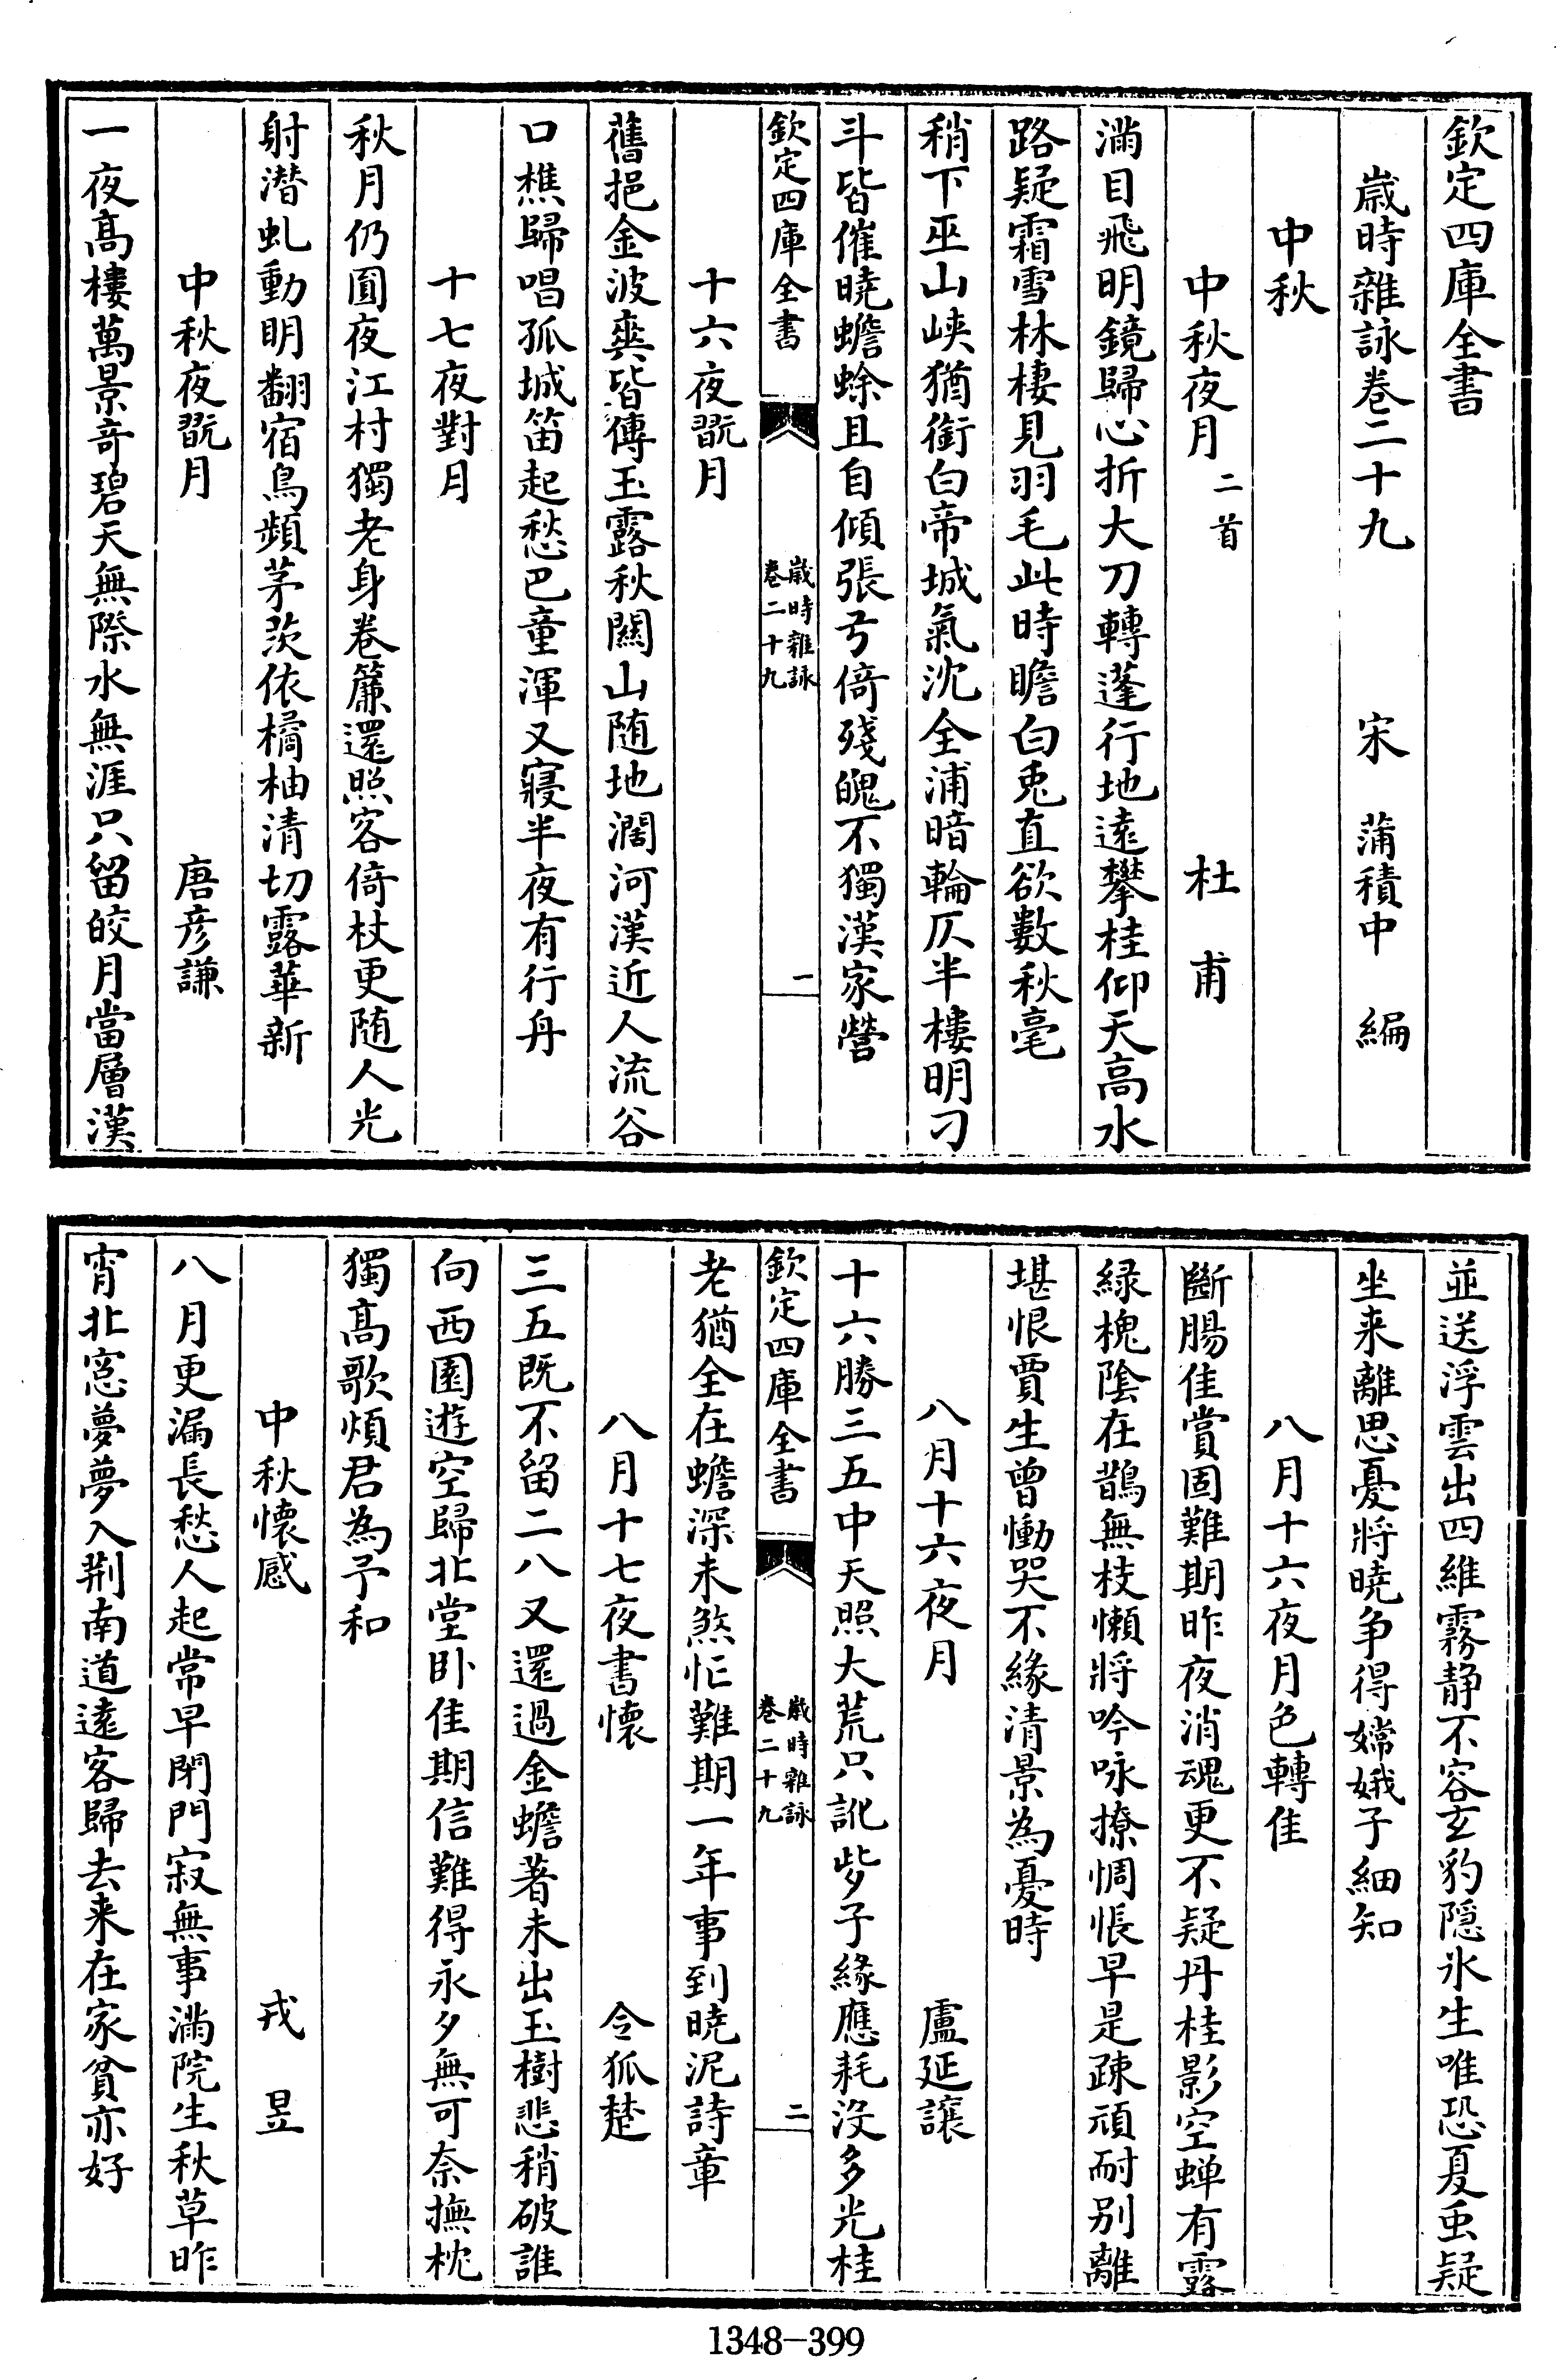 欽定四庫全書
歳時雜詠卷二十九　宋　蒲積中　編
中秋
中秋夜月二首　杜甫
滿目飛明鏡歸心折大刀轉蓬行地逺攀桂仰天高水
路疑霜雪林棲見羽毛此時瞻白兎直欲數秋毫
稍下巫山峽猶銜白帝城氣沈全浦暗輪仄半樓明刁
斗皆催曉蟾蜍且自傾張弓倚殘魄不獨漢家營
欽定四庫全書　歳時雜詠卷二十九　一
十六夜翫月
舊挹金波爽皆傳玉露秋關山随地濶河漢近人流谷
口樵歸唱孤城笛起愁巴童渾又寢半夜有行舟
十七夜對月
秋月仍圓夜江村獨老身卷簾還照客倚杖更随人光
射潜虬動明翻宿鳥頻茅茨依橘柚清切露華新
中秋夜翫月　唐彦謙
一夜髙樓萬景竒碧天無際水無涯只留皎月當層漢
並送浮雲出四維霧静不容𤣥豹隠氷生唯恐夏虫疑
坐来離思憂將曉争得嫦娥子細知
八月十六夜月色轉佳
斷腸佳賞固難期昨夜消魂更不疑丹桂影空蟬有露
緑槐隂在鵲無枝懶將吟咏撩惆悵早是疎頑耐别離
堪恨賈生曾慟哭不緣清景為憂時
八月十六夜月　盧延讓
十六勝三五中天照大荒只訛㱔子緣應耗没多光桂
欽定四庫全書　歳時雜詠卷二十九　二
老猶全在蟾深未煞忙難期一年事到曉泥詩章
八月十七夜書懷　令狐楚
三五既不留二八又還過金蟾著未出玉樹悲稍破誰
向西園遊空歸北堂卧佳期信難得永夕無可奈撫枕
獨髙歌煩君為予和
中秋懷感　戎昱
八月更漏長愁人起常早閉門寂無事滿院生秋草昨
宵北窓夢夢入荆南道逺客歸去来在家貧亦好
1348-399